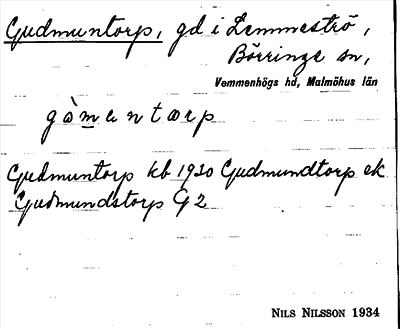 Gudmuntorp, gd i Lemmeströ,
Börringe sn,
Vemmenhögs hd, Malmöhus län
gòmentærp
Gudmuntorp kb 1930 Gudmundtorp ek
Gudmundstorp G2
NILS NILSSON 1934